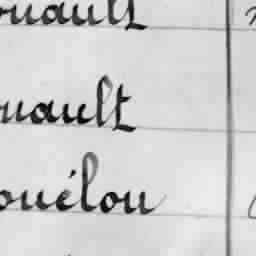 ouault
ouault
ouélou